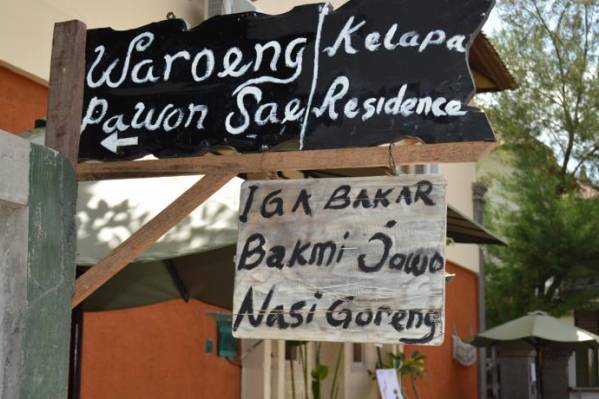 Waroeng
Pawon Sae
Kelapa
Residence
IGA BAKAR
Bakmi Jowo
Nasi Goreng